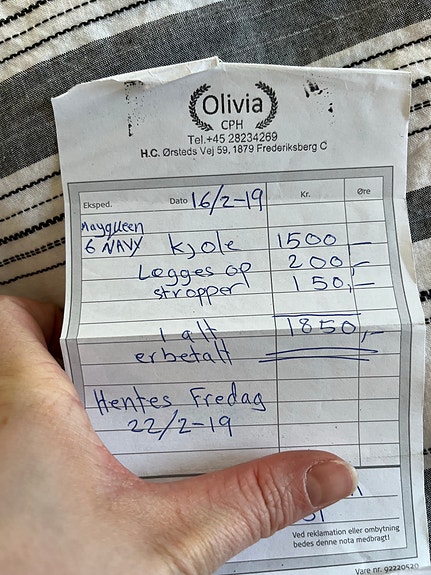 Olivia
CPH
Tel.+45 28234269
H.C. Ørsteds Vej 59, 1879 Frederiksberg C
Eksped. Dato 16/2-19 Kr. Øre
Mayqueen
6 NAVY Kjole 1500,-
Lægges op 200,-
stropper 150,-
I alt 1850,-
er betalt
Hentes Fredag
22/2-19
Ved reklamation eller ombytning
bedes denne nota medbragt!
Vare nr. 92220520